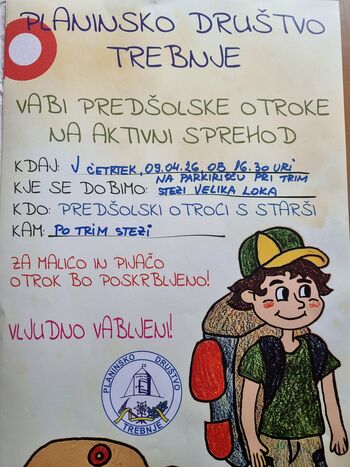 PLANINSKO DRUŠTVO
TREBNJE
VABI PREDŠOLSKE OTROKE
NA AKTIVNI SPREHOD
KDAJ: V ČETRTEK, 09.04.26, OB 16.30 URI
KJE SE DOBIMO: NA PARKIRIŠČU PRI TRIM
STEZI VELIKA LOKA
KDO: PREDŠOLSKI OTROCI S STARŠI
KAM: PO TRIM STEZI
ZA MALICO IN PIJAČO
OTROK BO POSKRBLJENO!
VLJUDNO VABLJENI!
PLANINSKO DRUŠTVO
TREBNJE